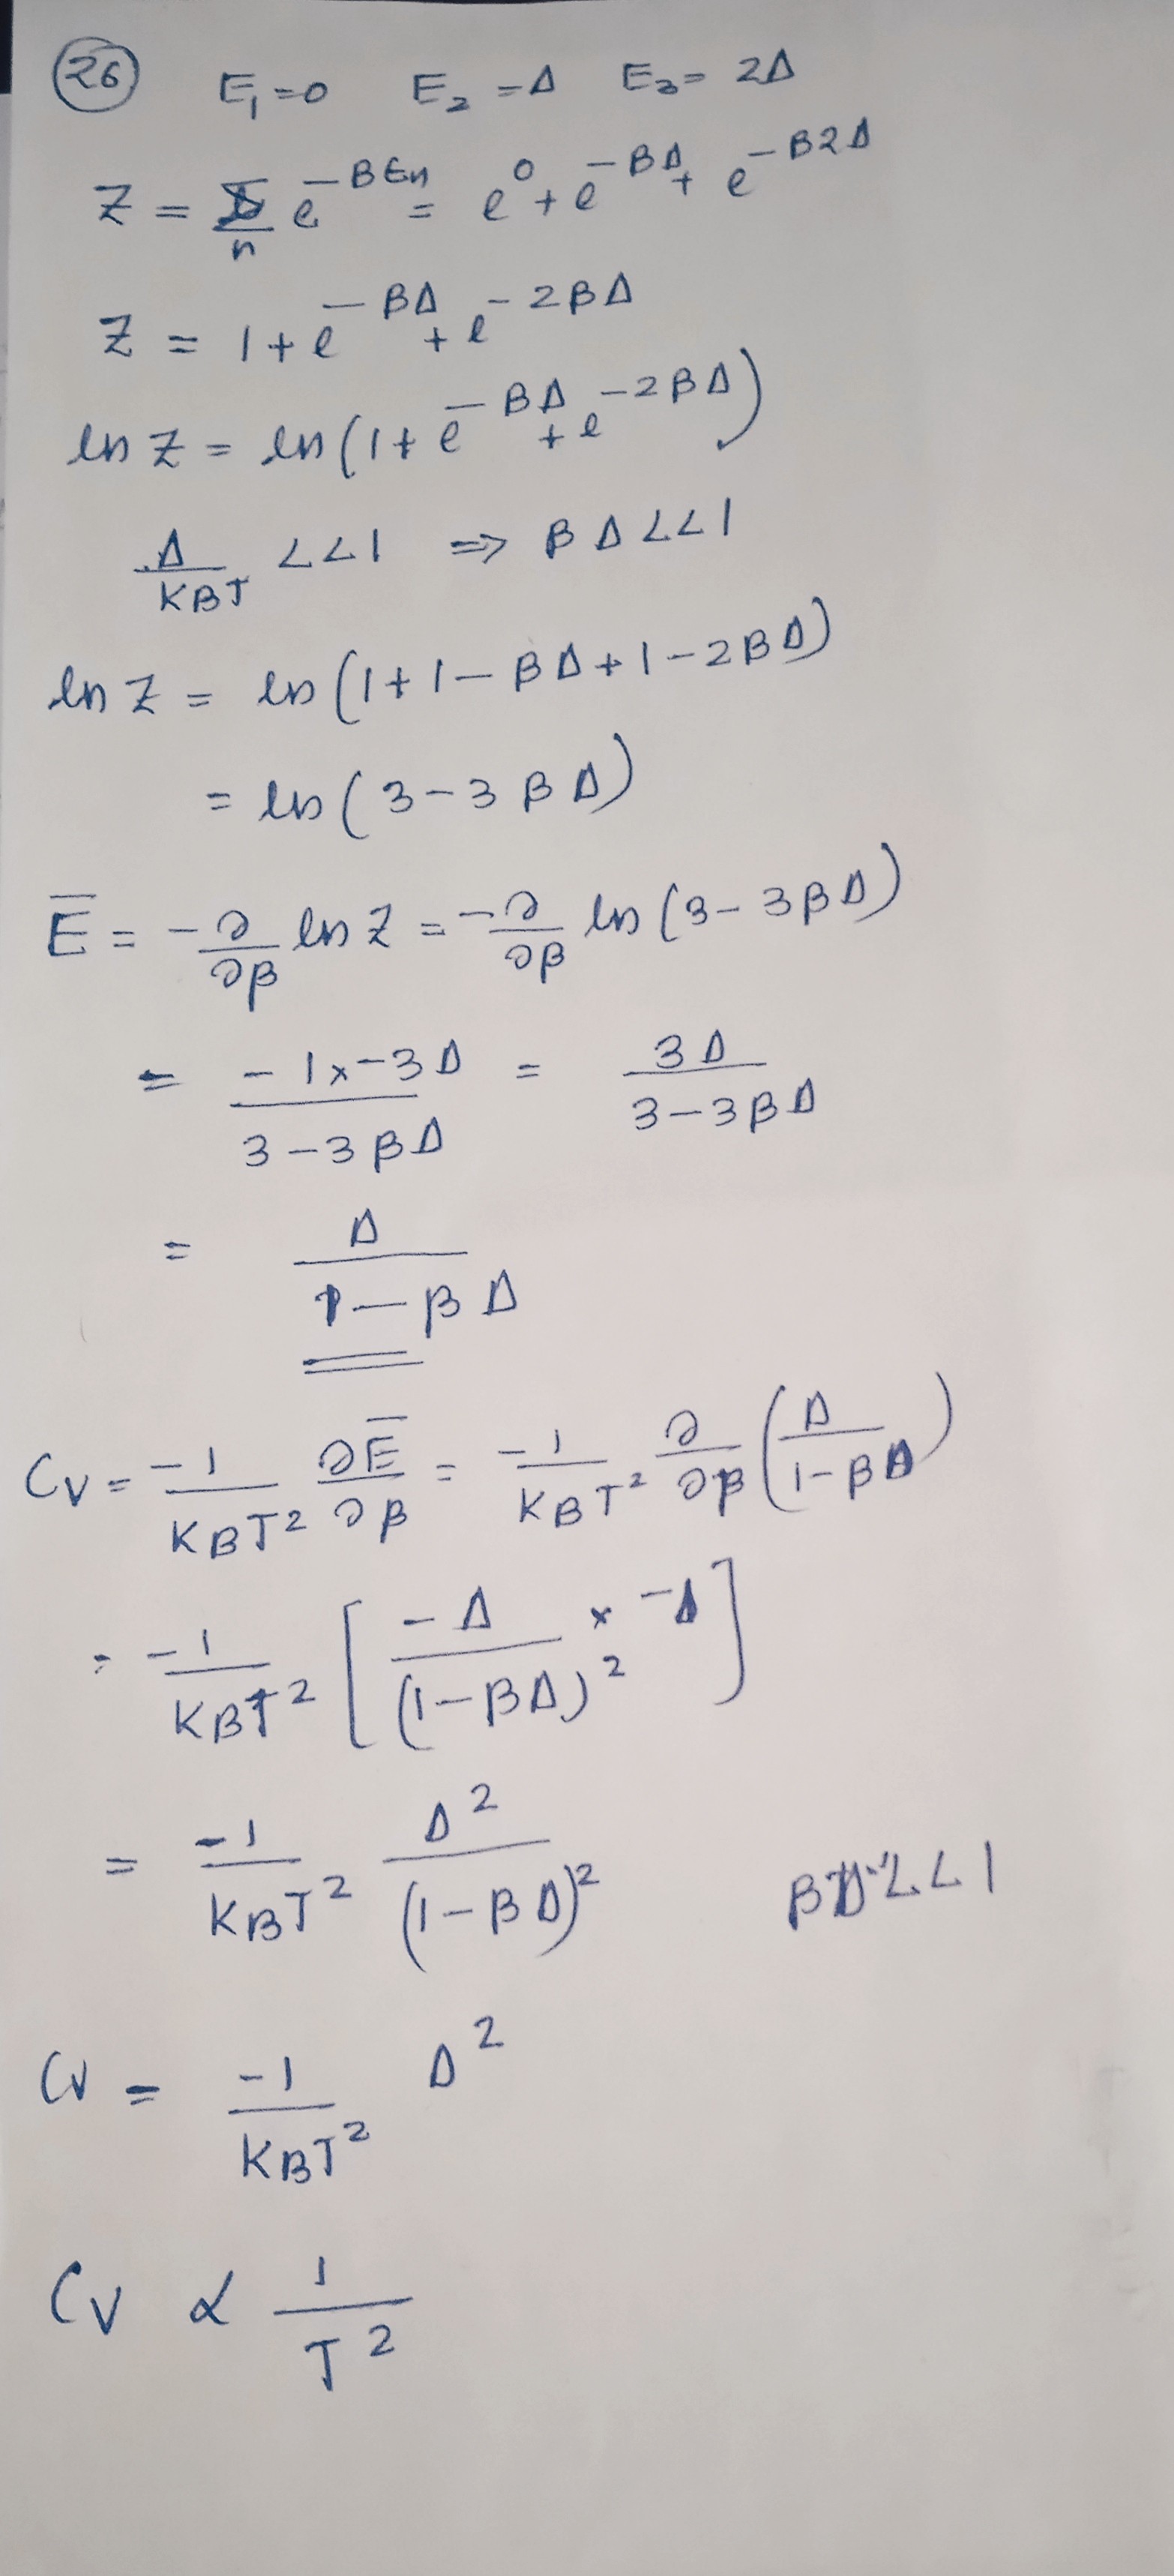 26 E₁=0 E₂=Δ E₃=2Δ
Z = Σₙ e^(-βEn) = e⁰ + e^(-βΔ) + e^(-β2Δ)
Z = 1 + e^(-βΔ) + e^(-2βΔ)
ln Z = ln(1 + e^(-βΔ) + e^(-2βΔ))
Δ/KBT <<1 ⇒ βΔ<<1
ln Z = ln(1+1-βΔ+1-2βΔ)
= ln(3-3βΔ)
E̅ = -∂/∂β ln Z = -∂/∂β ln(3-3βΔ)
= (-1×-3Δ)/(3-3βΔ) = 3Δ/(3-3βΔ)
= Δ/(1-βΔ)
CV = -1/KBT² ∂E̅/∂β = -1/KBT² ∂/∂β (Δ/(1-βΔ))
= -1/KBT² [-Δ/(1-βΔ)² × -Δ]
= -1/KBT² Δ²/(1-βΔ)² βΔ<<1
CV = -1/KBT² Δ²
CV ∝ 1/T²